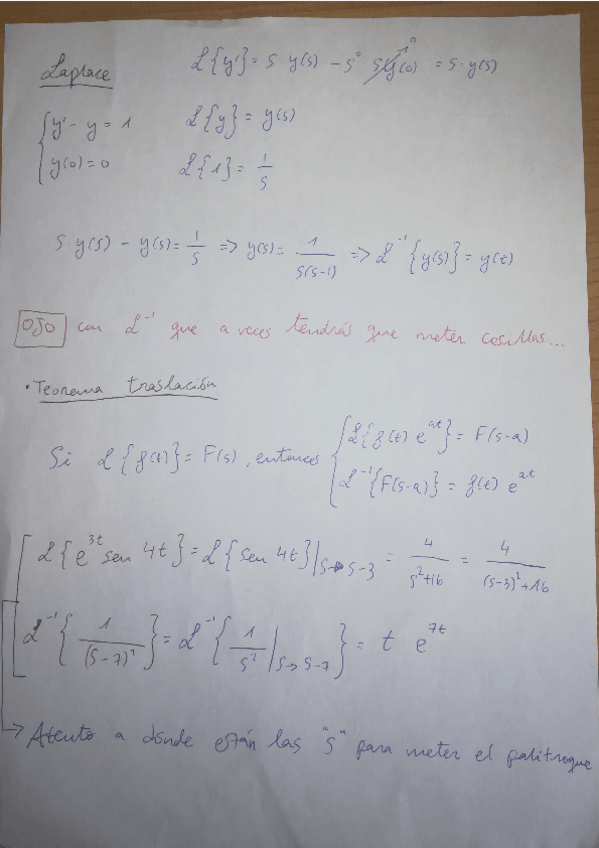 Laplace
ℒ{y'} = s·y(s) − s⁰ s y(0) ⁰ = s·y(s)
{ y' − y = 1
y(0) = 0
ℒ{y} = y(s)
ℒ{1} = 1/s
s·y(s) − y(s) = 1/s ⇒ y(s) = 1/(s(s−1)) ⇒ ℒ⁻¹{y(s)} = y(t)
OJO con ℒ⁻¹ que a veces tendrás que meter cosillas...
• Teorema traslación
Si ℒ{f(t)} = F(s), entonces { ℒ{f(t) e^{at}} = F(s−a)
ℒ⁻¹{F(s−a)} = f(t) e^{at}
ℒ{e^{3t} sen 4t} = ℒ{sen 4t}|s→s−3 = 4/(s²+16) = 4/((s−3)²+16)
ℒ⁻¹{1/(s−7)²} = ℒ⁻¹{1/s² |s→s−7} = t e^{7t}
→ Atento a dónde están las "s" para meter el palitroque